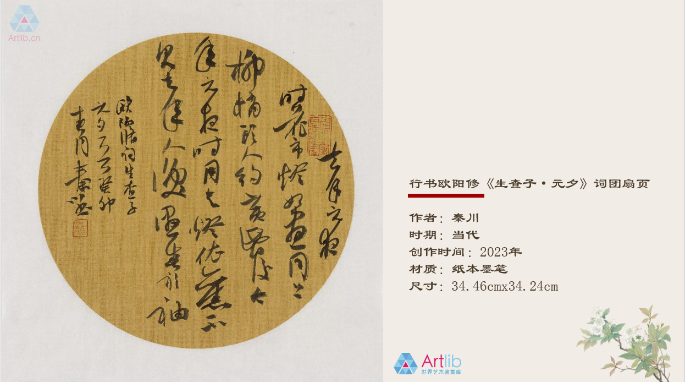 Artlib.cn
去年元夜
时花市燈如晝月上
柳梢頭人約黃昏後今
年元夜时月与燈依舊不
见去年人淚濕春衫袖
歐陽脩词生查子
元夕 癸卯
春月秦川
行书欧阳修《生查子·元夕》词团扇页
作者：秦川
时期：当代
创作时间：2023年
材质：纸本墨笔
尺寸：34.46cmx34.24cm
Artlib
世界艺术鉴赏库